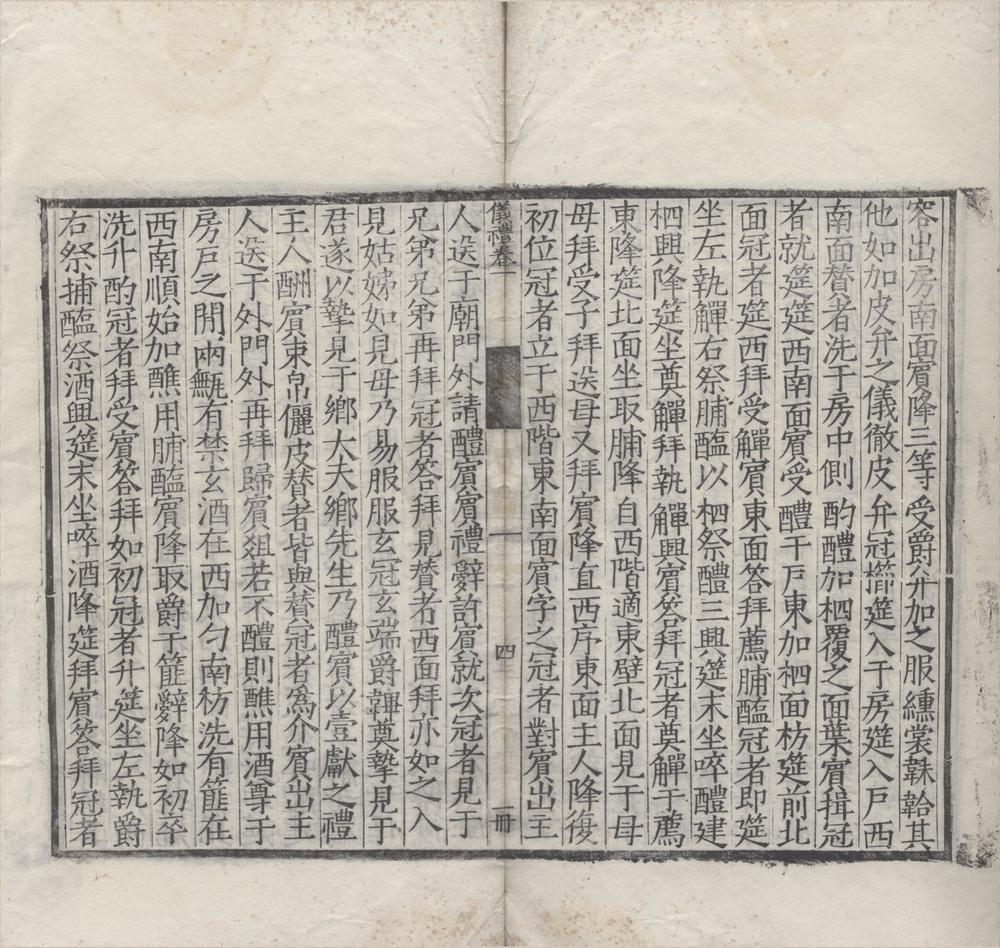 容出房南面賓降三等受爵弁加之服纁裳韎韐其
他如加皮弁之儀徹皮弁冠櫛筵入于房筵入戶西
南面賛者洗于房中側酌醴加柶覆之面葉賓揖冠
者就筵筵西南面賓受醴于戶東加柶面枋筵前北
面冠者筵西拜受觶賓東面答拜薦脯醢冠者即筵
坐左執觶右祭脯醢以柶祭醴三興筵末坐啐醴建
柶興降筵坐奠觶拜執觶興賓答拜冠者奠觶于薦
東降筵北面坐取脯降自西階適東壁北面見于母
母拜受子拜送母又拜賓降直西序東面主人降復
初位冠者立于西階東南面賓字之冠者對賓出主
儀禮卷一
四
一冊
人送于廟門外請醴賓賓禮辭許賓就次冠者見于
兄弟兄弟再拜冠者答拜見賛者西面拜亦如之入
見姑姊如見母乃易服服玄冠玄端爵韠奠摯見于
君遂以摯見于鄉大夫鄉先生乃醴賓以壹獻之禮
主人酬賓束帛儷皮賛者皆與賛冠者爲介賓出主
人送于外門外再拜歸賓俎若不醴則醮用酒尊于
房戶之間兩甒有禁玄酒在西加勺南枋洗有篚在
西南順始加醮用脯醢賓降取爵于篚辭降如初卒
洗升酌冠者拜受賓答拜如初冠者升筵坐左執爵
右祭捕醢祭酒興筵末坐啐酒降筵拜賓答拜冠者